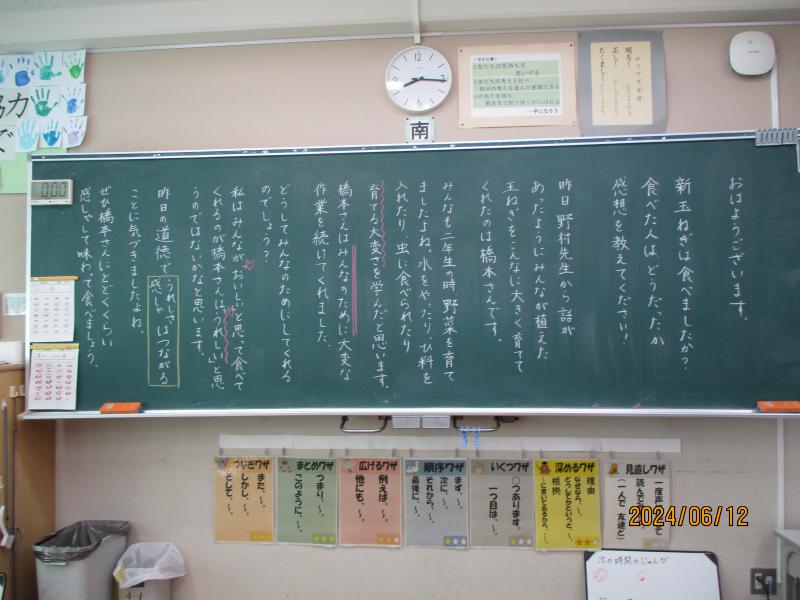 おはようございます。
新玉ねぎは食べましたか？
食べた人は、どうだったか
感想を教えてください！
昨日 野村先生から話が
あったようにみんなが植えた
玉ねぎをこんなに大きく育てて
くれたのは橋本さんです。
みんなも二年生の時 野菜を育て
ましたよね。水をやったり、ひ料を
入れたり、虫に食べられたり
育てる大変さを学んだと思います。
橋本さんはみんなのために大変な
作業を続けてくれました。
どうしてみんなのためにしてくれる
のでしょう？
私はみんながおいしいと思って食べて
くれるのが橋本さんは、うれしいと思
うのではないかなと思います。
昨日の道徳で「うれしさ
感しゃ はつながる
ことに気づきましたよね。
ぜひ橋本さんにとどくくらい
感しゃして味わって食べましょう。
南
明るく
正しく
たくましく
つなぎワザ
また、～。
しかし、～。
そして、～。
まとめワザ
つまり、～。
このように、～。
広げるワザ
例えば、～。
他にも、～。
順序ワザ
まず、～。
次に、～。
それから、～。
最後に、～。
いくつワザ
○つあります。
一つ目は、～。
深めるワザ
理由
なぜなら、～。
どうしてかというと、～。
根拠
～に書いてあるから、～。
見直しワザ
一度声
読んで
（一人で 友達と）
次の時間のじゅんび
2024/06/12